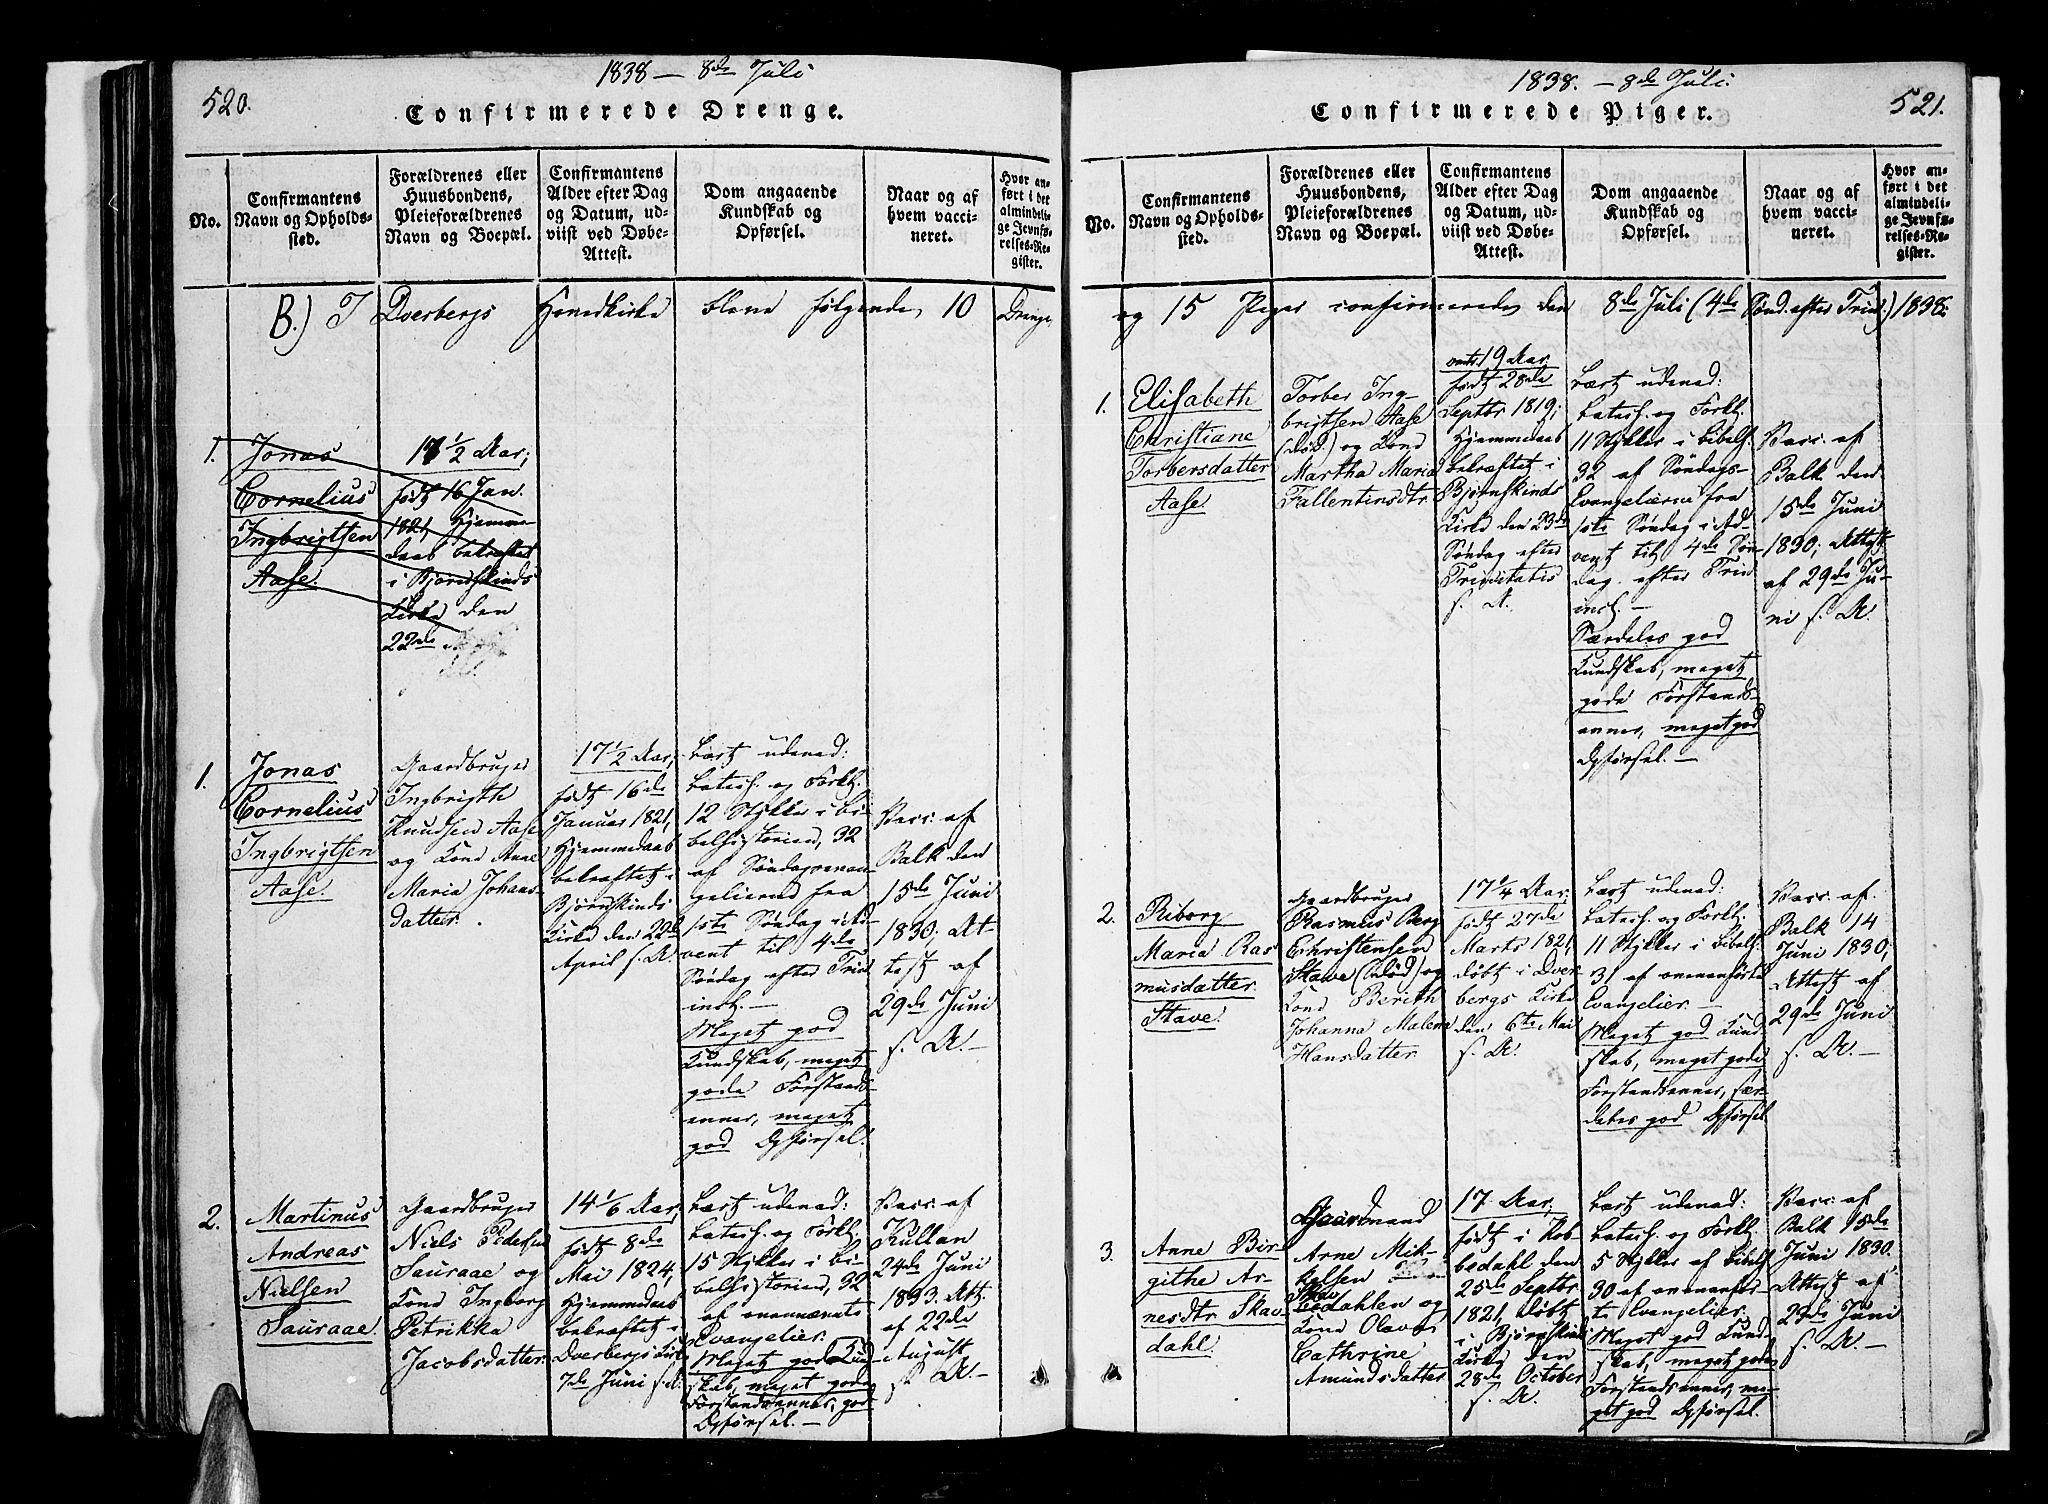 1838 - 8de Juli
520.
Confirmerede Drenge.
No.
Confirmantens
Navn og Opholds-
sted.
Forældrenes eller
Huusbondens,
Pleieforældrenes
Navn og Boepæl.
Confirmantens
Alder efter Dag
og Datum, ud-
viist ved Døbe-
Attest.
Dom angaaende
Kundskab og
Opførsel.
Naar og af
hvem vacci-
neret.
Hvor an-
ført i det
almindeli-
ge Jevnfø-
relses-Re-
gister.
B.) I Dverbergs Hovedkirke bleve følgende 10 Drenge
1.
Jonas
Cornelius
Ingbrigtsen
Aase.
17 1/2 Aar;
født 16 Jan.
1821, Hjemme-
daab bekræftet
i Bjørnskinds
Kirke den
22de
1.
Jonas
Cornelius
Ingbrigtsen
Aase.
Gaardbruger
Ingbrigth
Knudsen Aase
og Kone Anne
Maria Johans-
datter.
17 1/2 Aar;
født 16de
Januar 1821,
Hjemmedaab
bekræftet i
Bjørnskinds
Kirke den 22de
April s. A.
Lært udenad:
Catech. og Forkl.
12 Stykker i Bi-
belhistorien, 32
af Søndagsevan-
gelierne fra
1ste Søndag i Ad-
vent til 4de
Søndag efter Trin
incl. -
Meget god
Kundskab, meget
gode Forstands-
evner, meget
god Opførsel.
Vacc. af
Balk den
15de Juni
1830, At-
test af
29de Juni
s. A. -
2.
Martinus
Andreas
Nielsen
Sauraae.
Gaardbruger
Niels Pedersen
Sauraae og
Kone Ingborg
Petrikka
Jacobsdatter.
14 1/6 Aar,
født 8de
Mai 1824,
Hjemmedaab
bekræftet i
Dverbergs Kirke
7de Juni s. A.
Lært udenad:
Catech. og Forkl.
15 Stykker i Bi-
belhistorien, 32
af ovennævnte
Evangelier.
Meget god Kund
skab, meget gode
Forstandsevner, god
Opførsel. -
Vacc. af
Kullan
24de Juni
1833. Att.
af 22de
August
s. A. -
1838. - 8de Juli.
521.
Confirmerede Piger.
No.
Confirmantens
Navn og Opholds-
sted.
Forældrenes eller
Huusbondens,
Pleieforældrenes
Navn og Boepæl.
Confirmantens
Alder efter Dag
og Datum, ud-
viist ved Døbe-
Attest.
Dom angaaende
Kundskab og
Opførsel.
Naar og af
hvem vacci-
neret.
Hvor an-
ført i det
almindeli-
ge Jevnfø-
relses-Re-
gister.
og 15 Piger confirmerede den 8de Juli (4de Sønd. efter Trin.) 1838:
1.
Elisabeth
Christiane
Torbersdatter
Aase.
Torber Ing-
brigtsen Aase
(død) og Kone
Martha Maria
Fallentinsdtr
19 Aar,
født 28de
Septbr 1819;
Hjemmedaab
bekræftet i
Bjørnskinds
Kirke den 23de
Søndag efter
Trinitatis
s. A.
Lært udenad:
Catech. og Forkl.
11 Stykker i Bibelh.
32 af Søndags-
Evangelierne fra
1ste Søndag i Ad
vent til 4de Søn-
dag efter Trin
incl. -
Særdeles god
Kundskab, meget
gode Forstands-
evner, meget god
Opførsel. -
Vacc. af
Balk den
15de Juni
1830; Attest
af 29de Ju-
ni s. A.
2.
Riborg
Maria Ras
musdatter
Stave.
Gaardbruger
Rasmus Berg
Christensen
Stave (død) og
Kone Berith
Johanna Malena
Hansdatter.
17 1/4 Aar;
født 27de
Marts 1821,
døbt i Dver
bergs Kirke
den 6te Mai
s. A.
Lært udenad:
Catech. og Forkl.
11 Stykker i Bibelh.
31 af ovenanførte
Evangelier. -
Meget god Kund-
skab, meget gode
Forstandsevner, sær-
deles god Opførsel
Vacc. af
Balk 14
Juni 1830;
Attest af
29de Juni
s. A. -
3.
Anne Bir-
githe Ar-
nesdtr. Skav
dahl.
Gaardmand
Arne Mik-
kelsen
Skav
dahlen og
Kone Olava
Cathrine
Amundsdatter
17 Aar,
født i Kob-
bedahl den
25de Septbr
1821, døbt
i Bjørnskinds
Kirke den
28de October
s. A.
Lært udenad:
Catech. og Forkl.
5 Stykker af Bibelh
30 af ovenanfør-
te Evangelier.
Meget god Kund-
skab, meget gode
Forstandsevner, me-
get god Opførsel.
Vacc. af
Balk 15de
Juni 1830.
Attest af
29de Juni
s. A. -